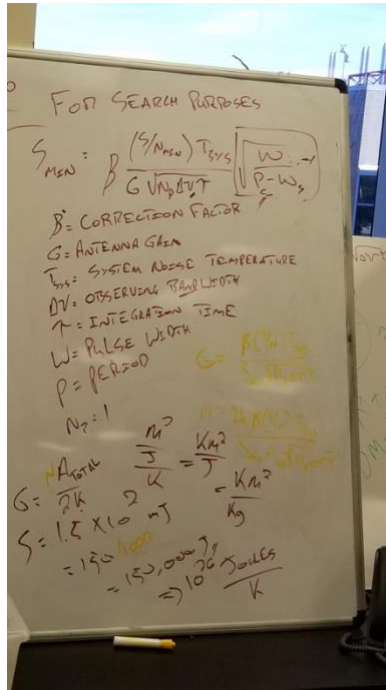 FOR SEARCH PURPOSES
S_MIN = β (S/N_MIN) T_SYS / G √(N_P ΔV T) √(W / P - W)
β = CORRECTION FACTOR
G = ANTENNA GAIN
T_SYS = SYSTEM NOISE TEMPERATURE
ΔV = OBSERVING BANDWIDTH
T = INTEGRATION TIME
W = PULSE WIDTH
P = PERIOD
N_P = 1
G = A_TOTAL / 2K
M² / J / K = KM² / J
= KM² / Kg
S = 1.5 X 10² mJ
= 150
= 150,000 J
=> 10²⁶ JOULES / K